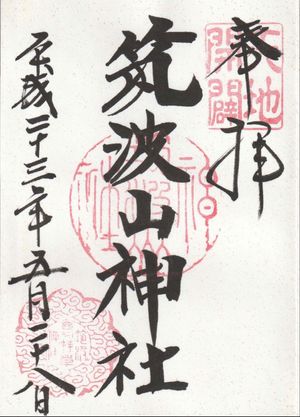 奉拝
天地開闢
筑波山神社
平成二十三年五月二十八日